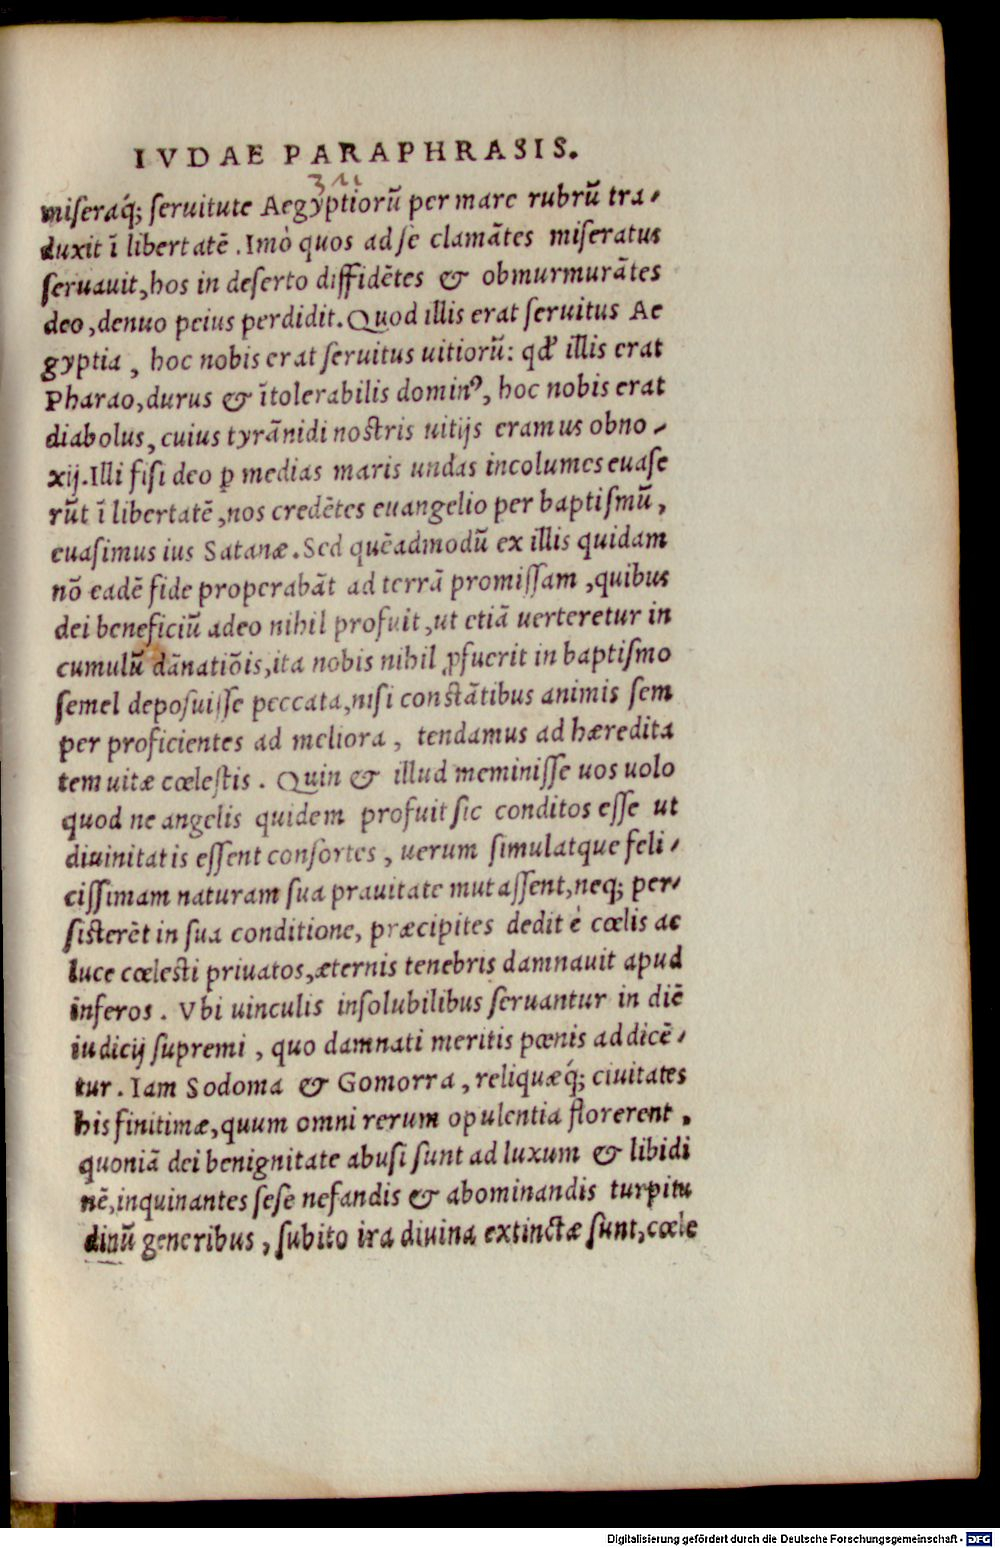 IVDAE PARAPHRASIS.
miseraq́; ſeruitute Aegyptiorũ per mare rubrũ tra-
duxit ĩ libertatẽ. Imò quos ad ſe clamãtes miſeratus
ſeruauit, hos in deſerto diffidẽtes & obmurmurãtes
deo, denuo peius perdidit. Quod illis erat ſeruitus Ae
gyptia, hoc nobis erat ſeruitus uitiorũ: qđ illis erat
Pharao, durus & ĩtolerabilis dominꝰ, hoc nobis erat
diabolus, cuius tyrãnidi noſtris uitijs eramus obno-
xij. Illi fiſi deo ꝑ medias maris undas incolumes euaſe
rũt ĩ libertatẽ, nos credẽtes euangelio per baptiſmũ,
euaſimus ius Satanæ. Sed quẽadmodũ ex illis quidam
nõ eadẽ fide properabãt ad terrã promiſſam, quibus
dei beneficiũ adeo nihil profuit, ut etiã uerteretur in
cumulũ dãnatiõis, ita nobis nihil ꝓfuerit in baptiſmo
ſemel depoſuiſſe peccata, niſi conſtãtibus animis ſem
per proficientes ad meliora, tendamus ad hæredita
tem uitæ cœleſtis. Quin & illud meminiſſe uos uolo
quod ne angelis quidem profuit ſic conditos eſſe ut
diuinitatis eſſent conſortes, uerum ſimulatque feli-
ciſſimam naturam ſua prauitate mutaſſent, neq; per-
ſiſterẽt in ſua conditione, præcipites dedit è cœlis ac
luce cœleſti priuatos, æternis tenebris damnauit apud
inferos. Vbi uinculis inſolubilibus ſeruantur in diẽ
iudicij ſupremi, quo damnati meritis pœnis addicẽ-
tur. Iam Sodoma & Gomorra, reliquæq́; ciuitates
his finitimæ, quum omni rerum opulentia florerent,
quoniã dei benignitate abuſi ſunt ad luxum & libidi
nẽ, inquinantes ſeſe nefandis & abominandis turpitu
dinũ generibus, ſubito ira diuina extinctæ ſunt, cœle
Digitalisierung gefördert durch die Deutsche Forschungsgemeinschaft - DFG